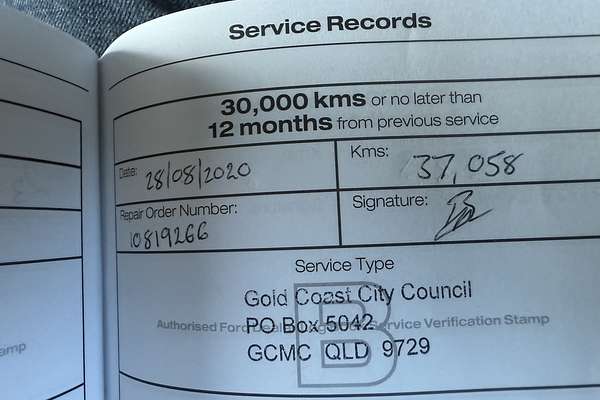 Service Records
30,000 kms or no later than
12 months from previous service
Date: 28/08/2020
Kms: 37,058
Repair Order Number:
10819266
Signature:
Service Type
B
Gold Coast City Council
PO Box 5042
Authorised Ford Service Verification Stamp
GCMC QLD 9729
amp